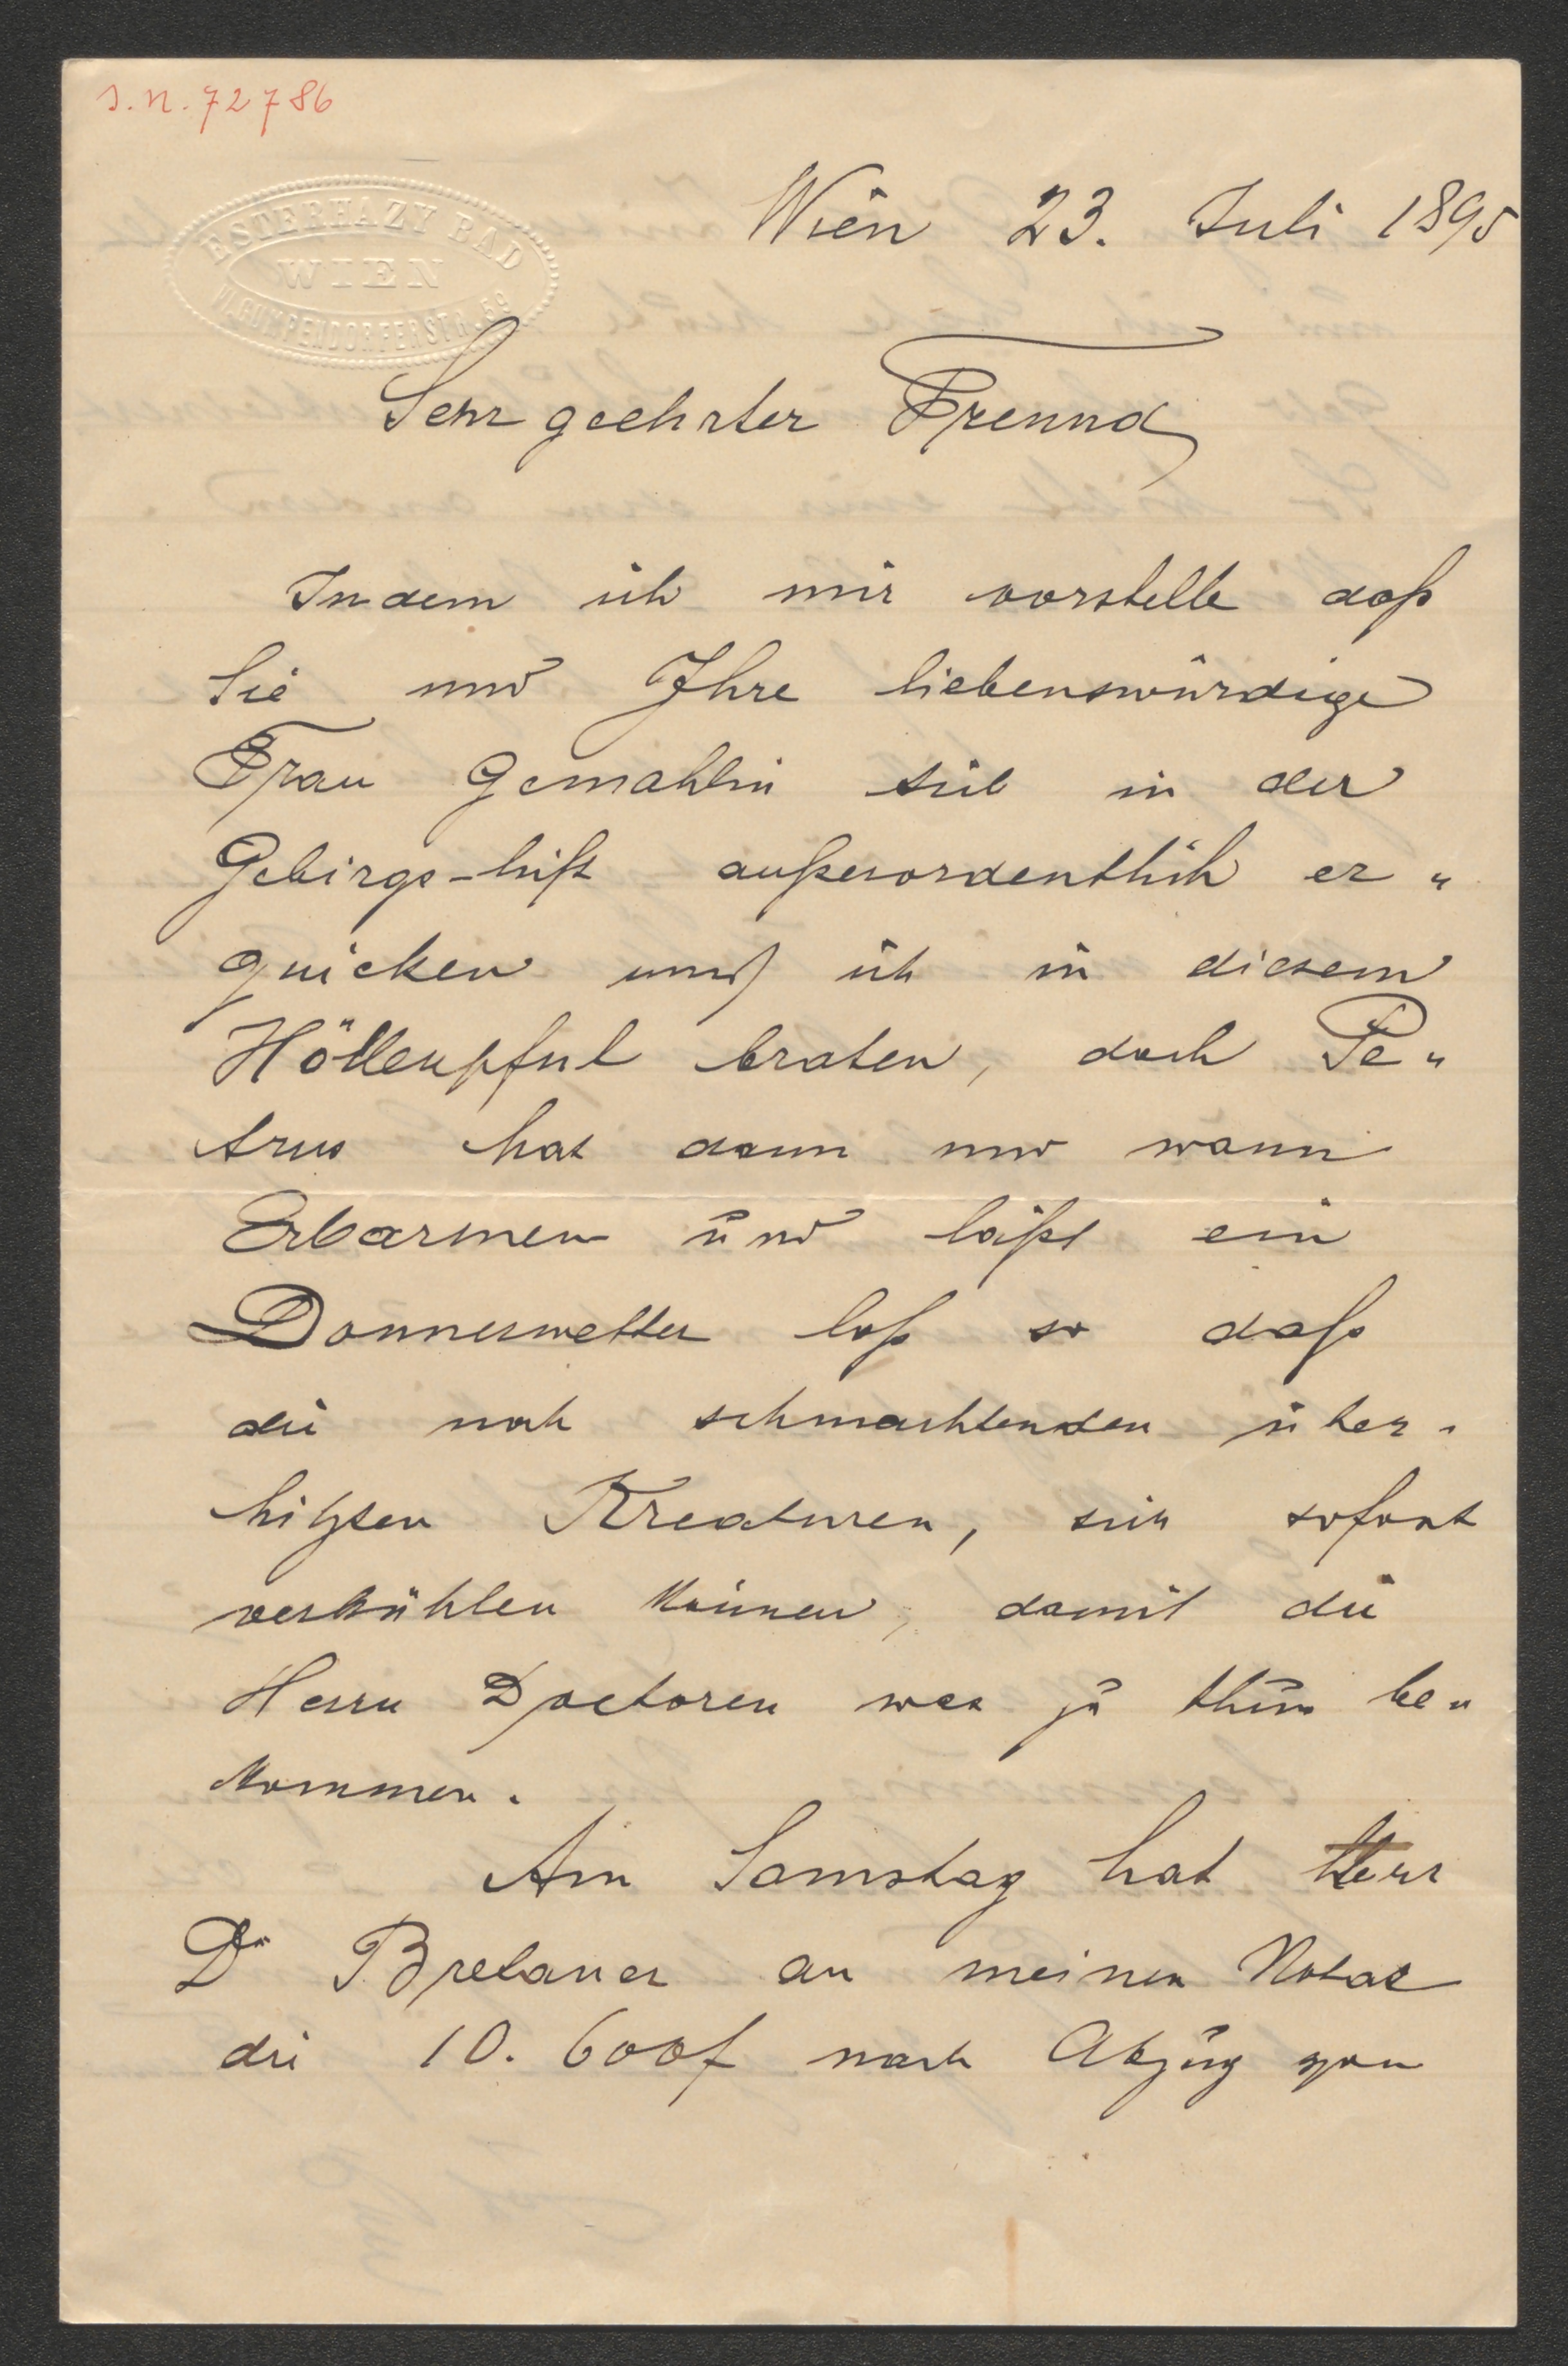 I.N. 72786
ESTERHAZY BAD
WIEN
VI. GUMPENDORFERSTR. 59
Wien 23. Juli 1895
Sehr geehrter Freund
Indem ich mir vorstelle daß
Sie und Ihre liebenswürdige
Frau Gemahlin sich in der
Gebirgs-luft außerordentlich er „
quicken und ich in diesem
Höllenpful braten, doch Pe „
trus hat dann und wann
Erbarmen und läßt ein
Donnerwetter loß so daß
die noch schmachtenden über -
hitzten Kreaturen, sich sofort
verkühlen können, damit die
Herrn Doctoren was zu thun be „
kommen.
Am Samstag hat Herr
Dr an meinen Notar
die 10. 600f nach Abzug von